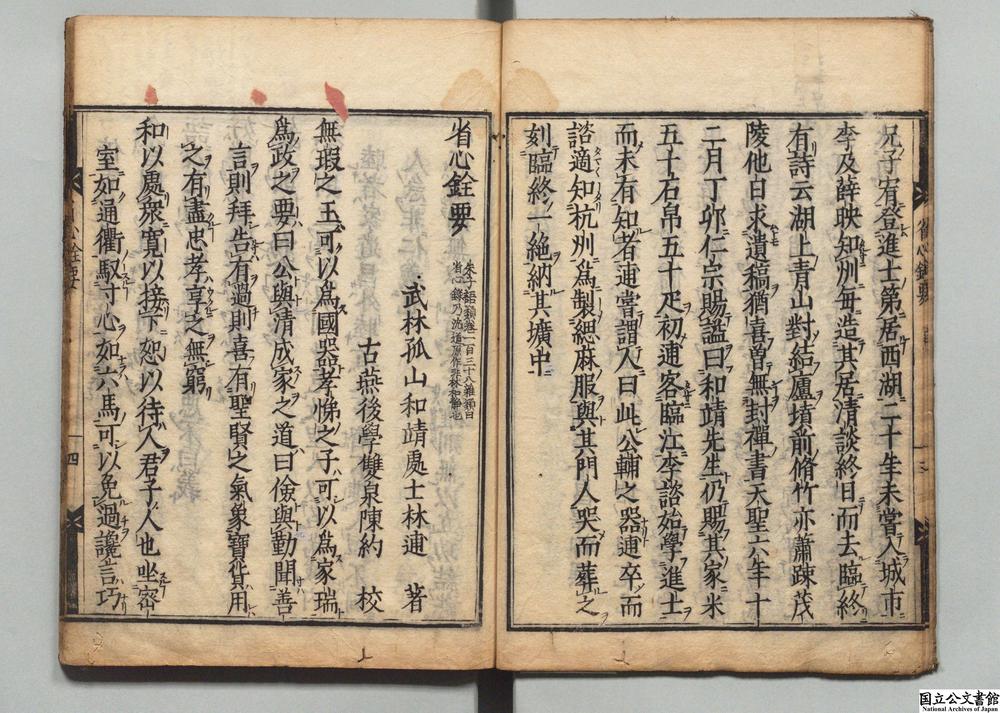 兄子宥登進士第居西湖二十年未嘗入城市
李及薛映知州每造其居清談終日而去臨終
有詩云湖上青山對結廬墳前脩竹亦蕭踈茂
陵他日求遺稿猶喜曽無封禪書天聖六年十
二月丁卯仁宗賜謚曰和靖先生仍賜其家米
五十石帛五十疋初逋客臨江李諮始學進士
而未有知者逋嘗謂人曰此公輔之器逋卒而
諮適知杭州為製緦麻服與其門人哭而葬之
刻臨終一絶納其壙中
省心銓要
朱子語類卷一百三十八雜類曰
省心錄乃沈道原作非林和靜也
武林孤山和靖處士林逋 著
古燕後學雙泉陳約 校
無瑕之玉可以為國器孝悌之子可以為家瑞
為政之要曰公與清成家之道曰儉與勤聞善
言則拜告有過則喜有聖賢之氣象寶貨用
之有盡忠孝享之無窮
和以處衆寬以接下恕以待人君子人也坐密
室如通衢馭寸心如六馬可以免過讒言巧
省心銓要
四
国立公文書館
National Archives of Japan